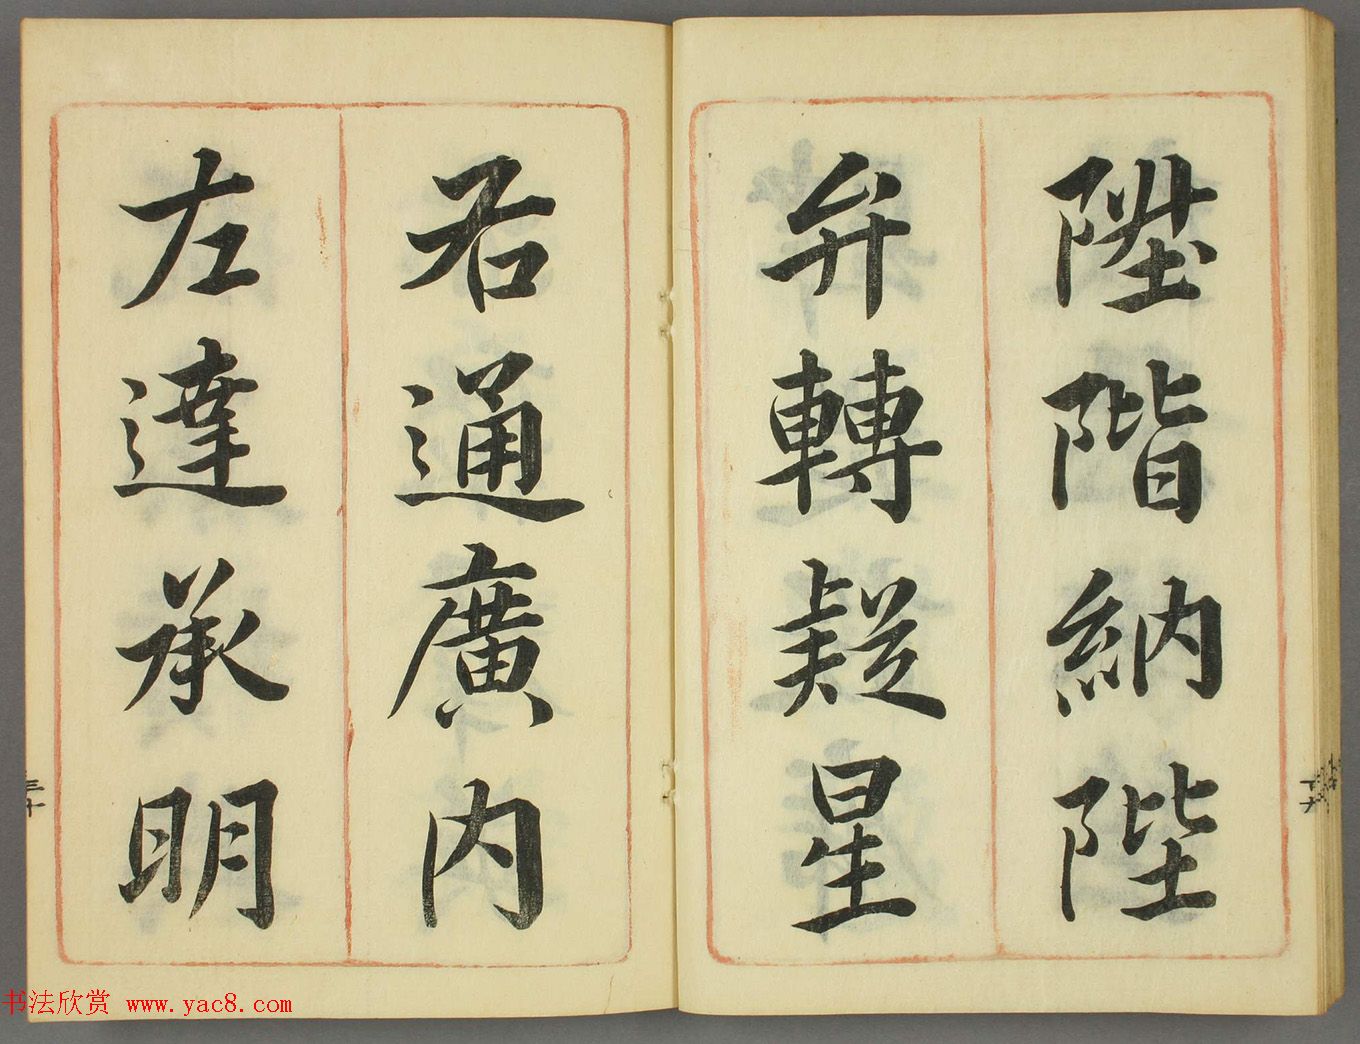 陞階納陛
弁轉疑星
右通廣内
左達承明
三十
书法欣赏 www.yac8.com